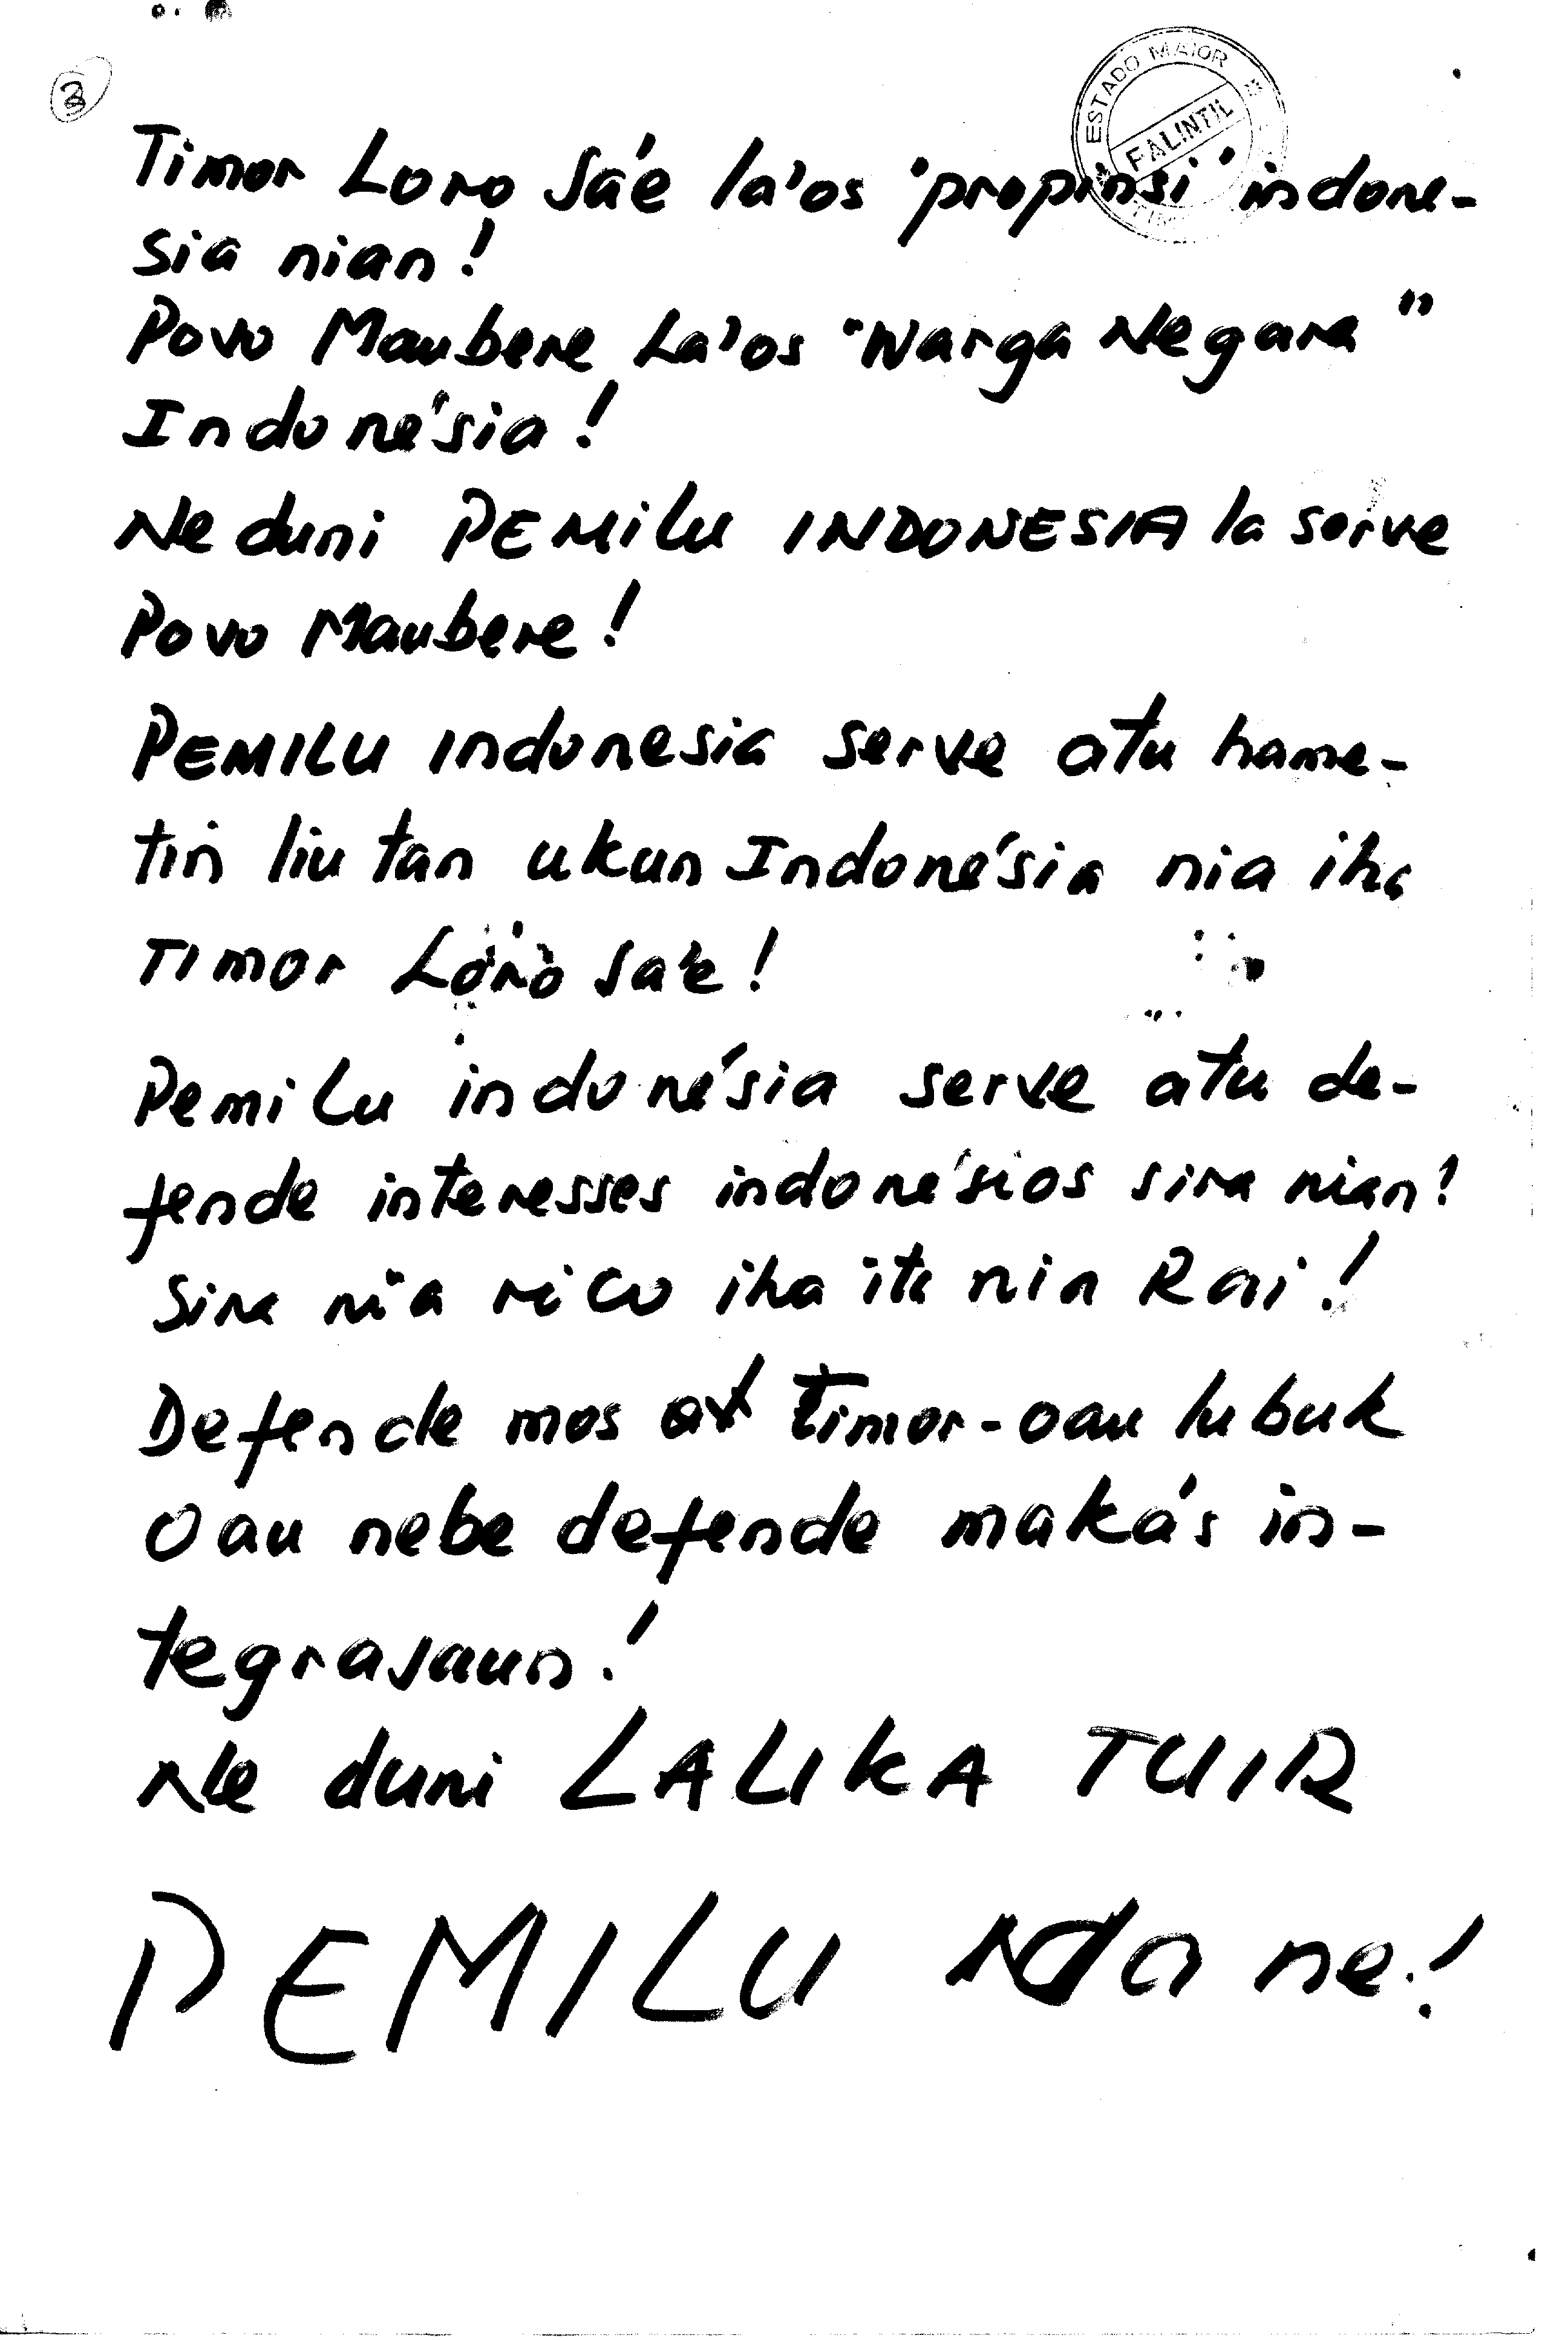 3
ESTADO MAIOR
FALINTIL
Timor Loro Sa'e la'os "propinsi" indone-
sia nian!
Povo Maubere La'os "Warga Negara"
Indonésia!
Ne duni PEMILU INDONESIA la serve
Povo Maubere!
PEMILU Indonesia serve atu hame-
tin liu tan ukun Indonésia nia iha
TIMOR Loro Sa'e!
Pemilu indonésia serve atu de-
fende interesses indonésios sira nian!
Sira nia rico iha ita nia Rai!
Defende mos Timor-oau lubuk
Oau nebe defende makás in-
tegrasaun!
Ne duni LALIKA TUIR
PEMILU ne!